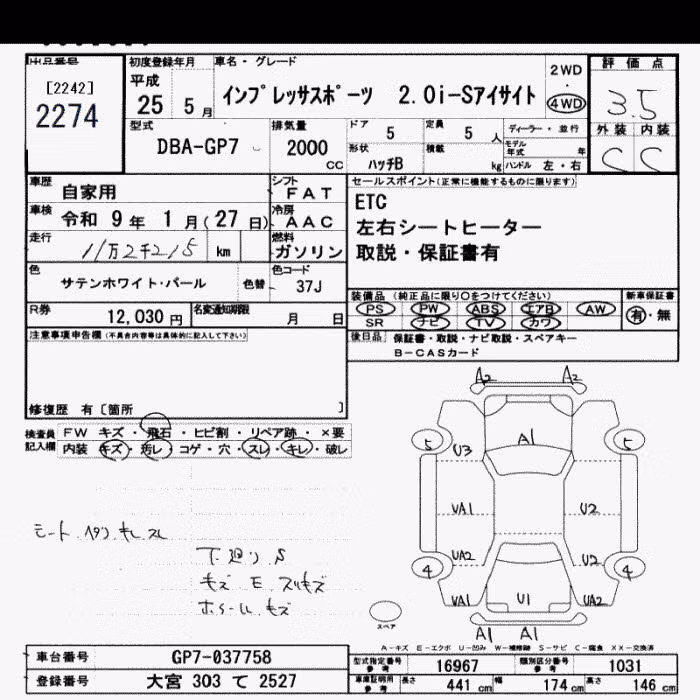 出品番号
[2242]
2274
初度登録年月
平成
25 5月
車名・グレード
インプレッサスポーツ 2.0i-Sアイサイト
2WD
・
4WD
評価点
3.5
外装 内装
C C
型式
DBA-GP7
排気量
2000 CC
ドア 5
定員 5 人
形状 ハッチB
積載 kg
ディーラー・並行
モデル年式 年
ハンドル 左・右
車歴 自家用
車検 令和 9年 1月(27日)
走行 11万2千215 km
色 サテンホワイト・パール 色替
シフト FAT
冷房 AAC
燃料 ガソリン
色コード 37J
R券 12,030円
名変通知期限 月 日
セールスポイント(正常に機能するものに限ります)
ETC
左右シートヒーター
取説・保証書有
装備品 (純正品に限り○をつけてください)
PS PW ABS エアB AW
SR ナビ TV カワ
新車保証書
有・無
後日品 保証書・取説・ナビ取説・スペアキー
B-CASカード
注意事項申告欄(不具合内容等は具体的に記入して下さい)
修復歴 有〔箇所 〕
検査員記入欄
FW キズ・飛石・ヒビ割・リペア跡・×要
内装 キズ・汚レ・コゲ・穴・スレ・キレ・破レ
シート ヘタリ キレ スレ
下廻り S
キズ E スリキズ
ホイール キズ
A2 A2
A1
5 5
U3
UA1 U2
UA2 U2
4 4
UA1 U1 UA2
A1 A1
スペア
A-キズ E-エクボ U-凹み W-補修跡 S-サビ C-腐食 XX-交換済
車台番号 GP7-037758
登録番号 大宮 303 て 2527
型式指定番号 参考 16967
類別区分番号 参考 1031
車庫証明用 参考 長さ 441 cm 幅 174 cm 高さ 146 cm